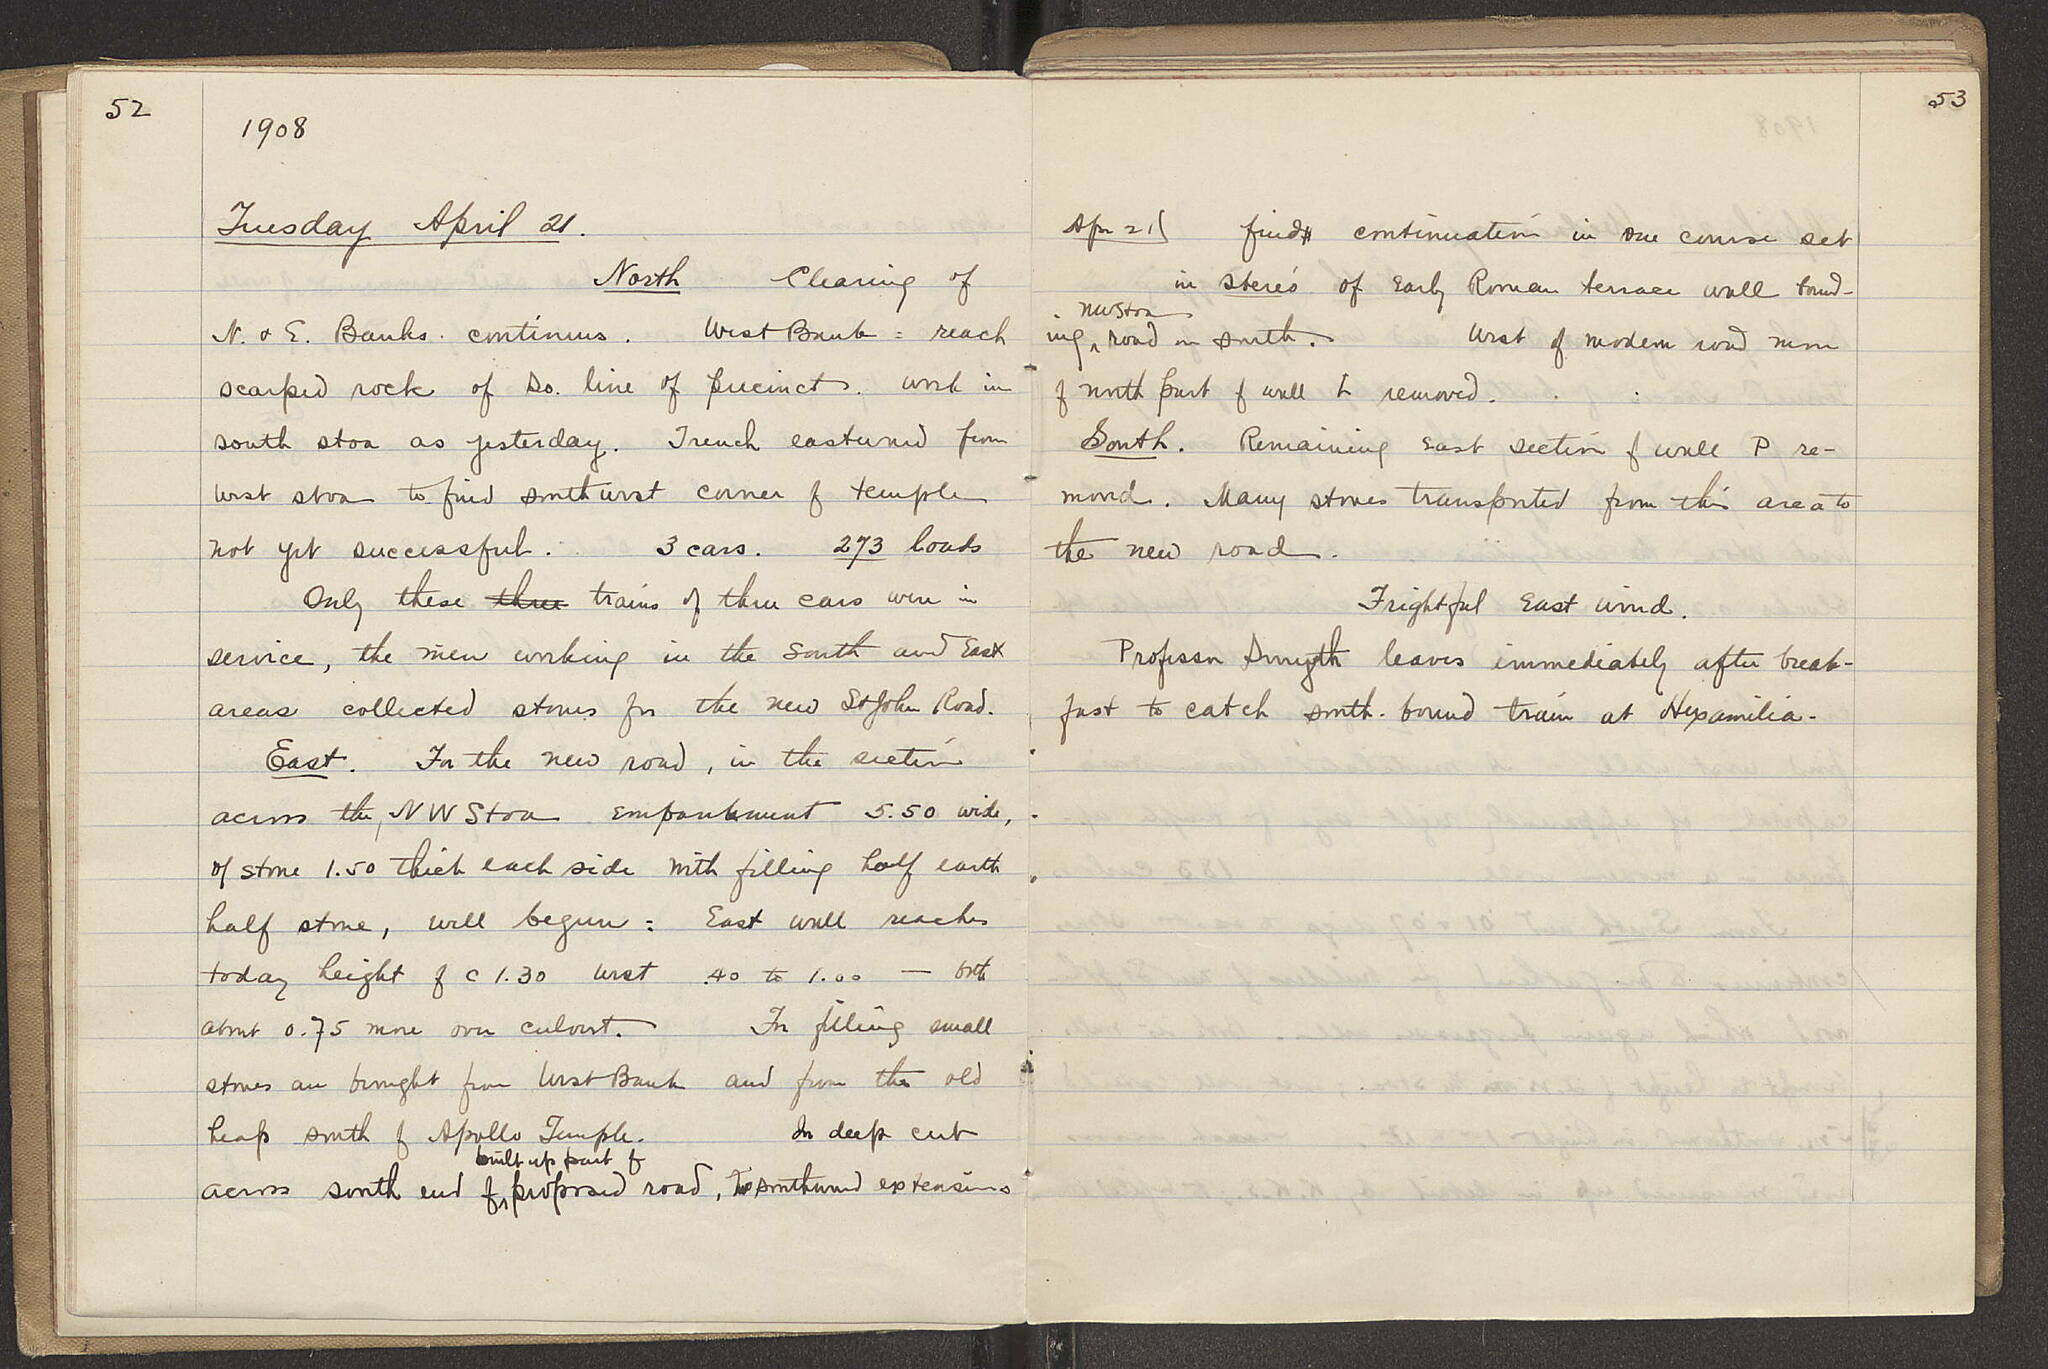 52
1908
Tuesday April 21.
North Clearing of
N. & E. Banks continues. West Bank = reach
scarped rock of So. line of precinct. Work in
south stoa as yesterday. Trench eastward from
west stoa to find southwest corner of temple
not yet successful. 3 cars. 273 loads
Only these three trains of three cars were in
service, the men working in the South and East
areas collected stones for the new St John Road.
East. For the new road, in the section
across the NW Stoa embankment 5.50 wide,
of stone 1.50 thick each side with filling half earth
half stone, well begun: East wall reaches
today height of c 1.30 west .40 to 1.00 — both
about 0.75 more over culvert. For filling small
stones are brought from West Bank and from the old
heap south of Apollo Temple. In deep cut
built up part of
across south end of proposed road, southward extension
53
Apr 21 finds continuation in one course set
in stereo of Early Roman terrace wall bound-
NW Stoa
ing road on south. West of modern road more
of north part of wall L removed.
South. Remaining East section of wall P re-
moved. Many stones transported from this area to
the new road.
Frightful East wind.
Professor Smyth leaves immediately after break-
fast to catch south-bound train at Hexamilia.